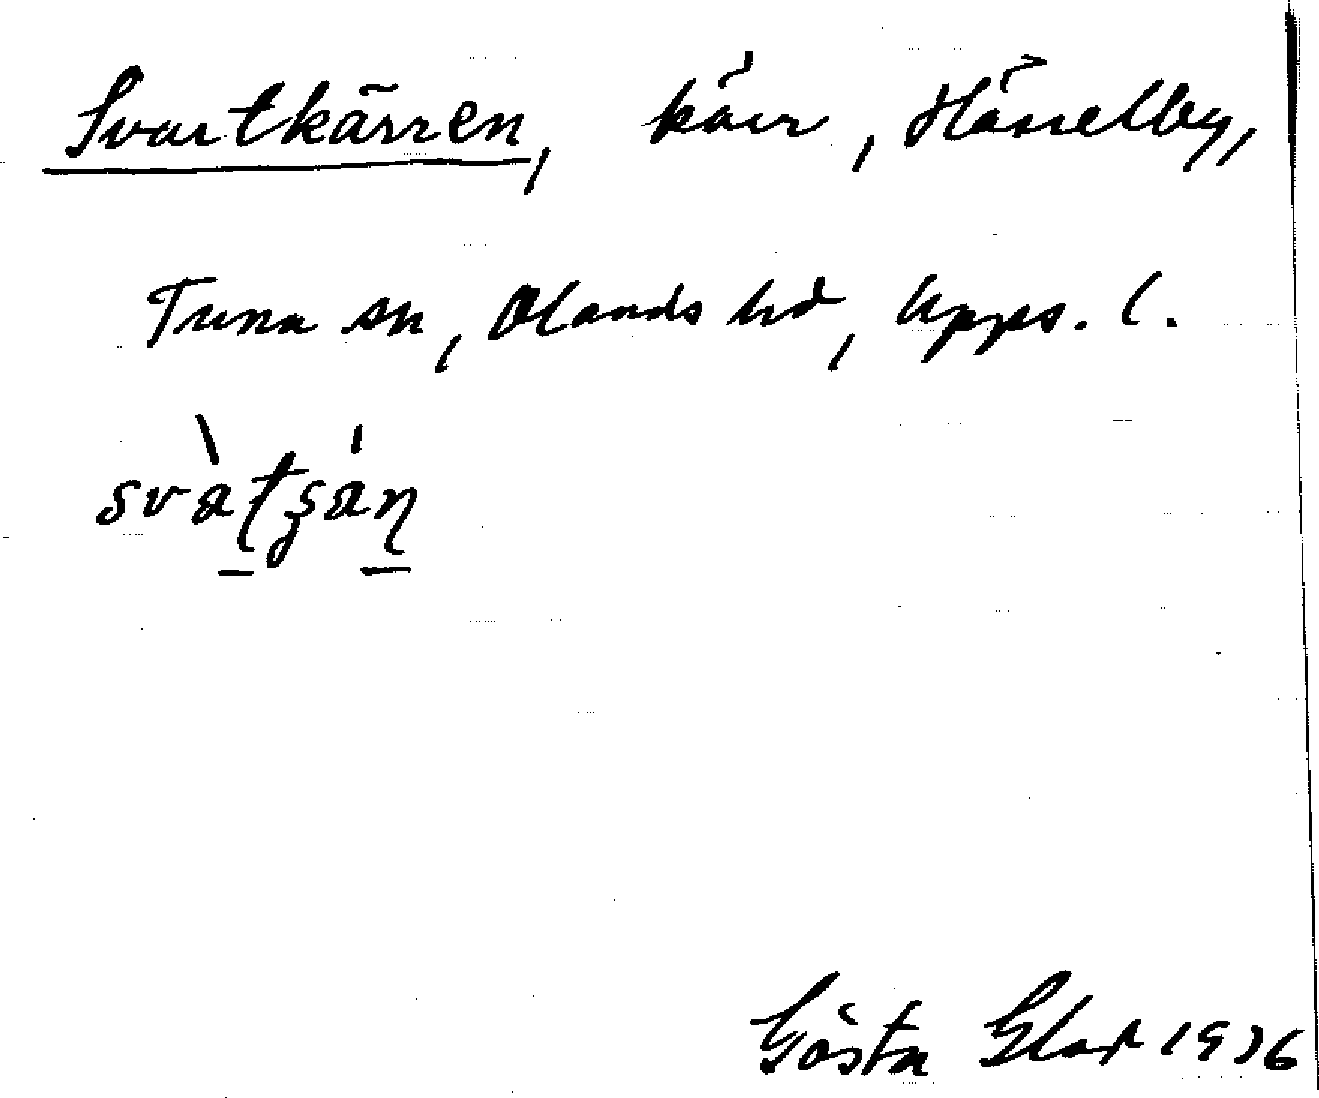 Svartkärren, kärr, Hässelby,
Tuna sn, Olands hd, Upps. l.
svàʈʂäɳ
Gösta 1936